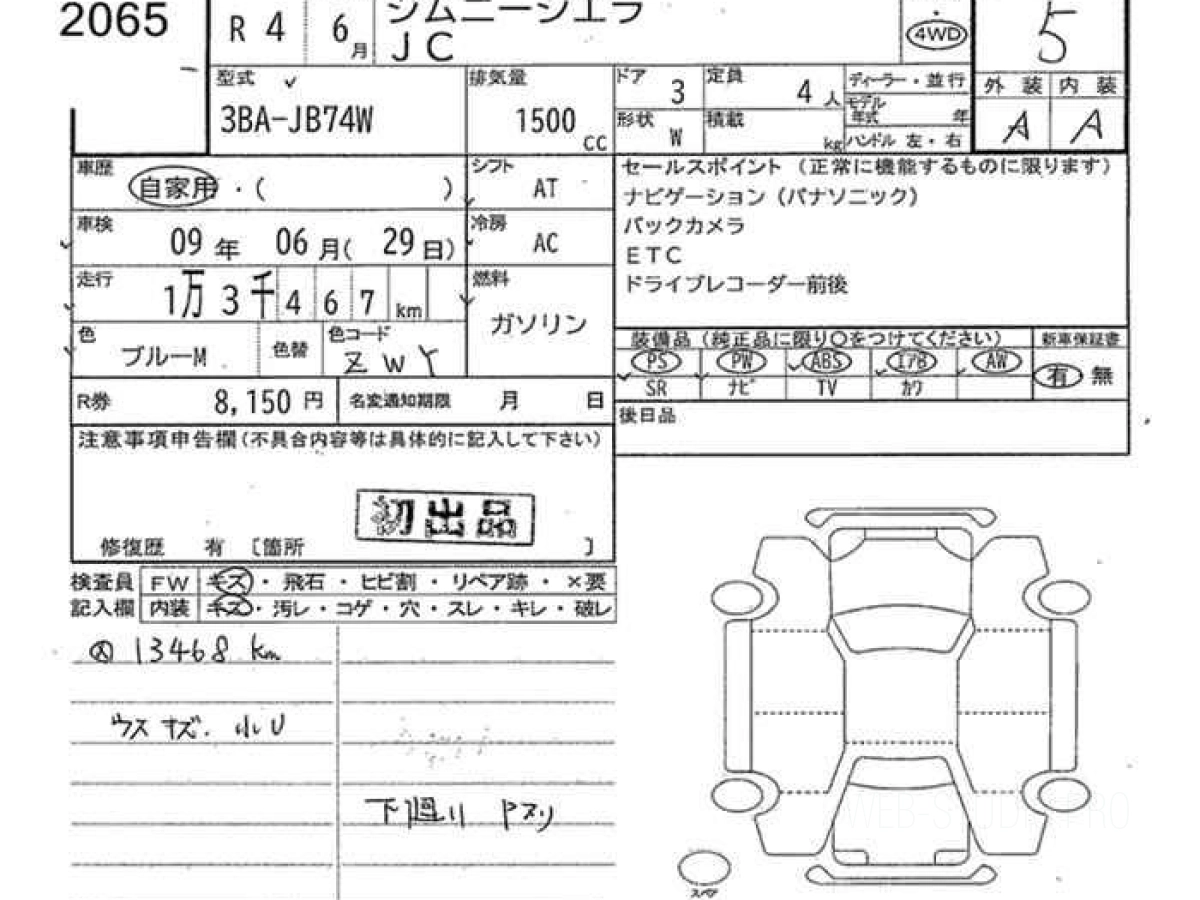 2065
R 4 6月
ジムニーシエラ
JC
4WD
5
型式
3BA-JB74W
排気量
1500 CC
ドア 3
定員 4 人
ディーラー・並行
モデル年式 年
形状 W
積載 kg
ハンドル 左・右
外装 内装
A A
車歴
自家用・( )
シフト
AT
セールスポイント (正常に機能するものに限ります)
ナビゲーション (パナソニック)
バックカメラ
ETC
ドライブレコーダー前後
車検
09年 06月( 29日)
冷房
AC
走行
1万3千467 km
燃料
ガソリン
色
ブルーM
色替
色コード
ZWY
装備品 (純正品に限り○をつけてください)
新車保証書
PS PW ABS エアB AW
有 無
SR ナビ TV カワ
R券
8,150 円
名変通知期限 月 日
後日品
注意事項申告欄(不具合内容等は具体的に記入して下さい)
初出品
修復歴 有 〔箇所 〕
検査員 FW キズ・飛石・ヒビ割・リペア跡・×要
記入欄 内装 キズ・汚レ・コゲ・穴・スレ・キレ・破レ
13468 km
ウスキズ. 小U
下廻り Pヌリ
スペア
WEB-STUDIO.PRO